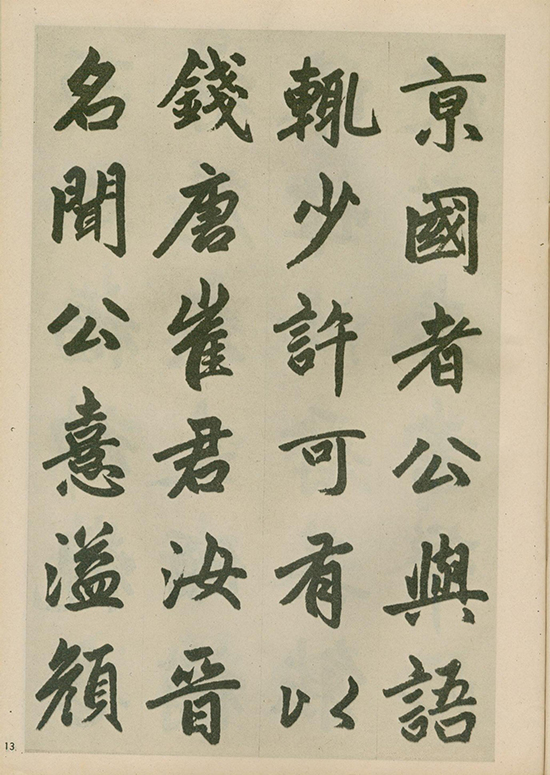 京國者公與語
輒少許可有以
錢唐崔君汝晉
名聞公憙溢顏
13